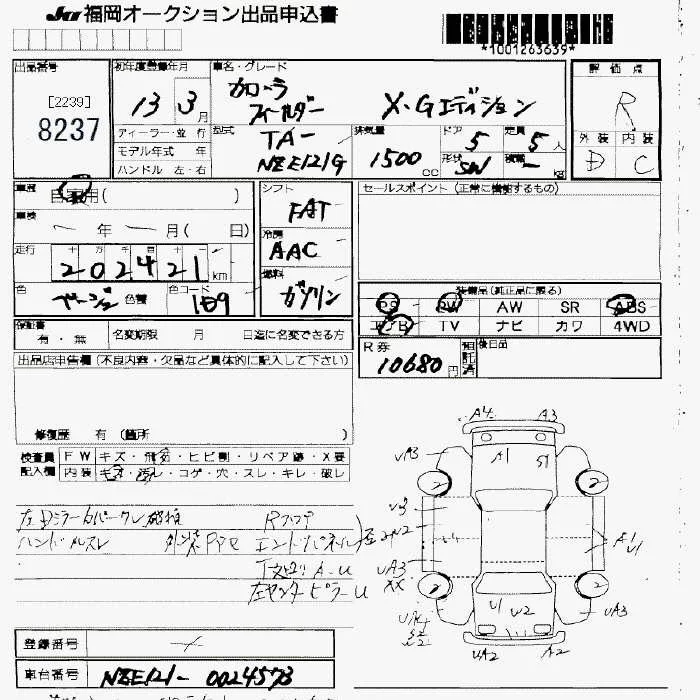 JU 福岡オークション出品申込書
*1001263639*
出品番号
[2239]
8237
初年度登録年月
13 3月
ディーラー・並行
モデル年式 年
ハンドル 左・右
車名・グレード
カローラ
フィールダー X・Gエディション
型式
TA-
NZE121G
排気量
1500cc
ドア
5
形状
SW
定員
5人
積載
- kg
評価点
R
外装 内装
D C
車歴
自家用( )
車検
年 月( 日)
走行
202421km
色
ベージュ 色替
色コード
1E9
シフト
FAT
冷房
AAC
燃料
ガソリン
セールスポイント(正常に機能するもの)
装備品(純正品に限る)
PS PW AW SR ABS
エアB TV ナビ カワ 4WD
R券
10680円
預託済
後日品
保証書
有・無
名変期限 月 日迄に名変できる方
出品店申告欄(不良内容・欠品など具体的に記入して下さい)
修復歴 有(箇所 )
検査員
記入欄
FW キズ・飛石・ヒビ割・リペア跡・X要
内装 キズ・汚れ・コゲ・穴・スレ・キレ・破レ
左Dミラーカバー
ハンドルスレ
エンドパネル
A-U
左センターピラーU
A4 A3
UA3 A1 S1
2 2
U3
UA3
XX
A1
U1
2 2
U1 U2
UA3
UA2 A2
登録番号
車台番号 NZE121-0024573